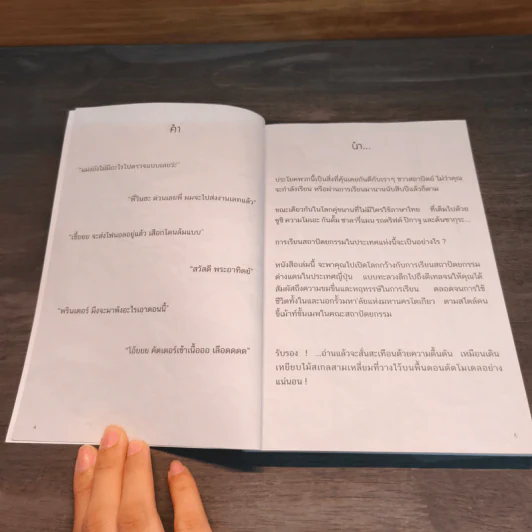 คำ
"แผลยังไม่มีอะไรไปตรวจแบบเลยว่ะ"
"พี่วินฮะ ด่วนเลยพี่ ผมจะไปส่งงานเลทแล้ว"
"เชี่ยยย จะส่งไฟนอลอยู่แล้ว เสือกโดนล้มแบบ"
"สวัสดี พระอาทิตย์"
"พรินเตอร์ มึงจะมาพังอะไรเอาตอนนี้"
"โอ้ยยย คัตเตอร์เข้าเนื้อออ เลือดดดด"
นำ...
ประโยคพวกนี้เป็นสิ่งที่คุ้นเคยกันดีกับเราๆ ชาวสถาปัตย์ ไม่ว่าคุณ
จะกำลังเรียน หรือผ่านการเรียนมานานนับสิบปีแล้วก็ตาม
ขณะเดียวกันในโลกคู่ขนานที่ไม่มีใครใช้ภาษาไทย ที่เต็มไปด้วย
ซูชิ ความโมเอะ กันดั้ม ซาลารี่แมน รถดริฟต์ ปิกาจู และต้นซากุระ...
การเรียนสถาปัตยกรรมในประเทศแห่งนี้จะเป็นอย่างไร ?
หนังสือเล่มนี้ จะพาคุณไปเปิดโลกกว้างกับการเรียนสถาปัตยกรรม
ต่างแดนในประเทศญี่ปุ่น แบบทะลวงลึกไปถึงดีเทลจนให้คุณได้
สัมผัสถึงความขมขื่นและหฤหรรษ์ในการเรียน ตลอดจนการใช้
ชีวิตทั้งในและนอกรั้วมหา'ลัยแห่งมหานครโตเกียว ตามสไตล์คน
ขี้เม้าท์ชั้นเมพในคณะสถาปัตยกรรม
รับรอง ! ...อ่านแล้วจะสั่นสะเทือนด้วยความตื้นตัน เหมือนเดิน
เหยียบไม้สเกลสามเหลี่ยมที่วางไว้บนพื้นตอนตัดโมเดลอย่าง
แน่นอน !